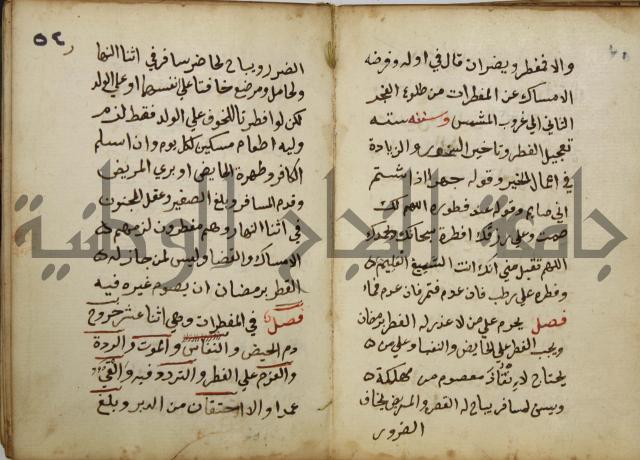 والا فمفطر ويضر ان قال في اوله وفرضه
الامساك عن المفطرات من طلوع الفجر
الثاني الى غروب الشمس وسننه ستة
تعجيل الفطر وتاخير السحور والزيادة
في اعمال الخير وقوله جهرا اذا شتم
اني صايم وقوله عند فطوره اللهم لك
صمت وعلى رزقك افطرت سبحانك وبحمدك
اللهم تقبل مني انك انت السميع العليم
وفطره على رطب فان عدم فتمر فان عدم فماء
فصل يحرم على من لا عذر له الفطر برمضان
ويجب الفطر على الحايض والنفسا وعلى من
يحتاج لانقاذ معصوم من مهلكة
ويسن لمسافر يباح له القصر والمريض يخاف
الضرر
٥٢
الضرر ويباح لحاضر سافر في اثنا النهار
ولحامل ومرضع خافتا على انفسهما او على الولد
لكن لو افطرتا للخوف على الولد فقط لزم
وليه اطعام مسكين لكل يوم وان اسلم
الكافر وطهرة الحايض او بري المريض
وقدم المسافر وبلغ الصغير وعقل المجنون
في اثنا النهار وهم مفطرون لزمهم
الامساك والقضا وليس لمن جاز له
الفطر برمضان ان يصوم غيره فيه
فصل في المفطرات وهي اثنا عشر خروج
دم الحيض والنفاس والموت والردة
والعزم على الفطر والتردد فيه والقيء
عمدا والاحتقان من الدبر وبلغ
جامعة النجاح الوطنية